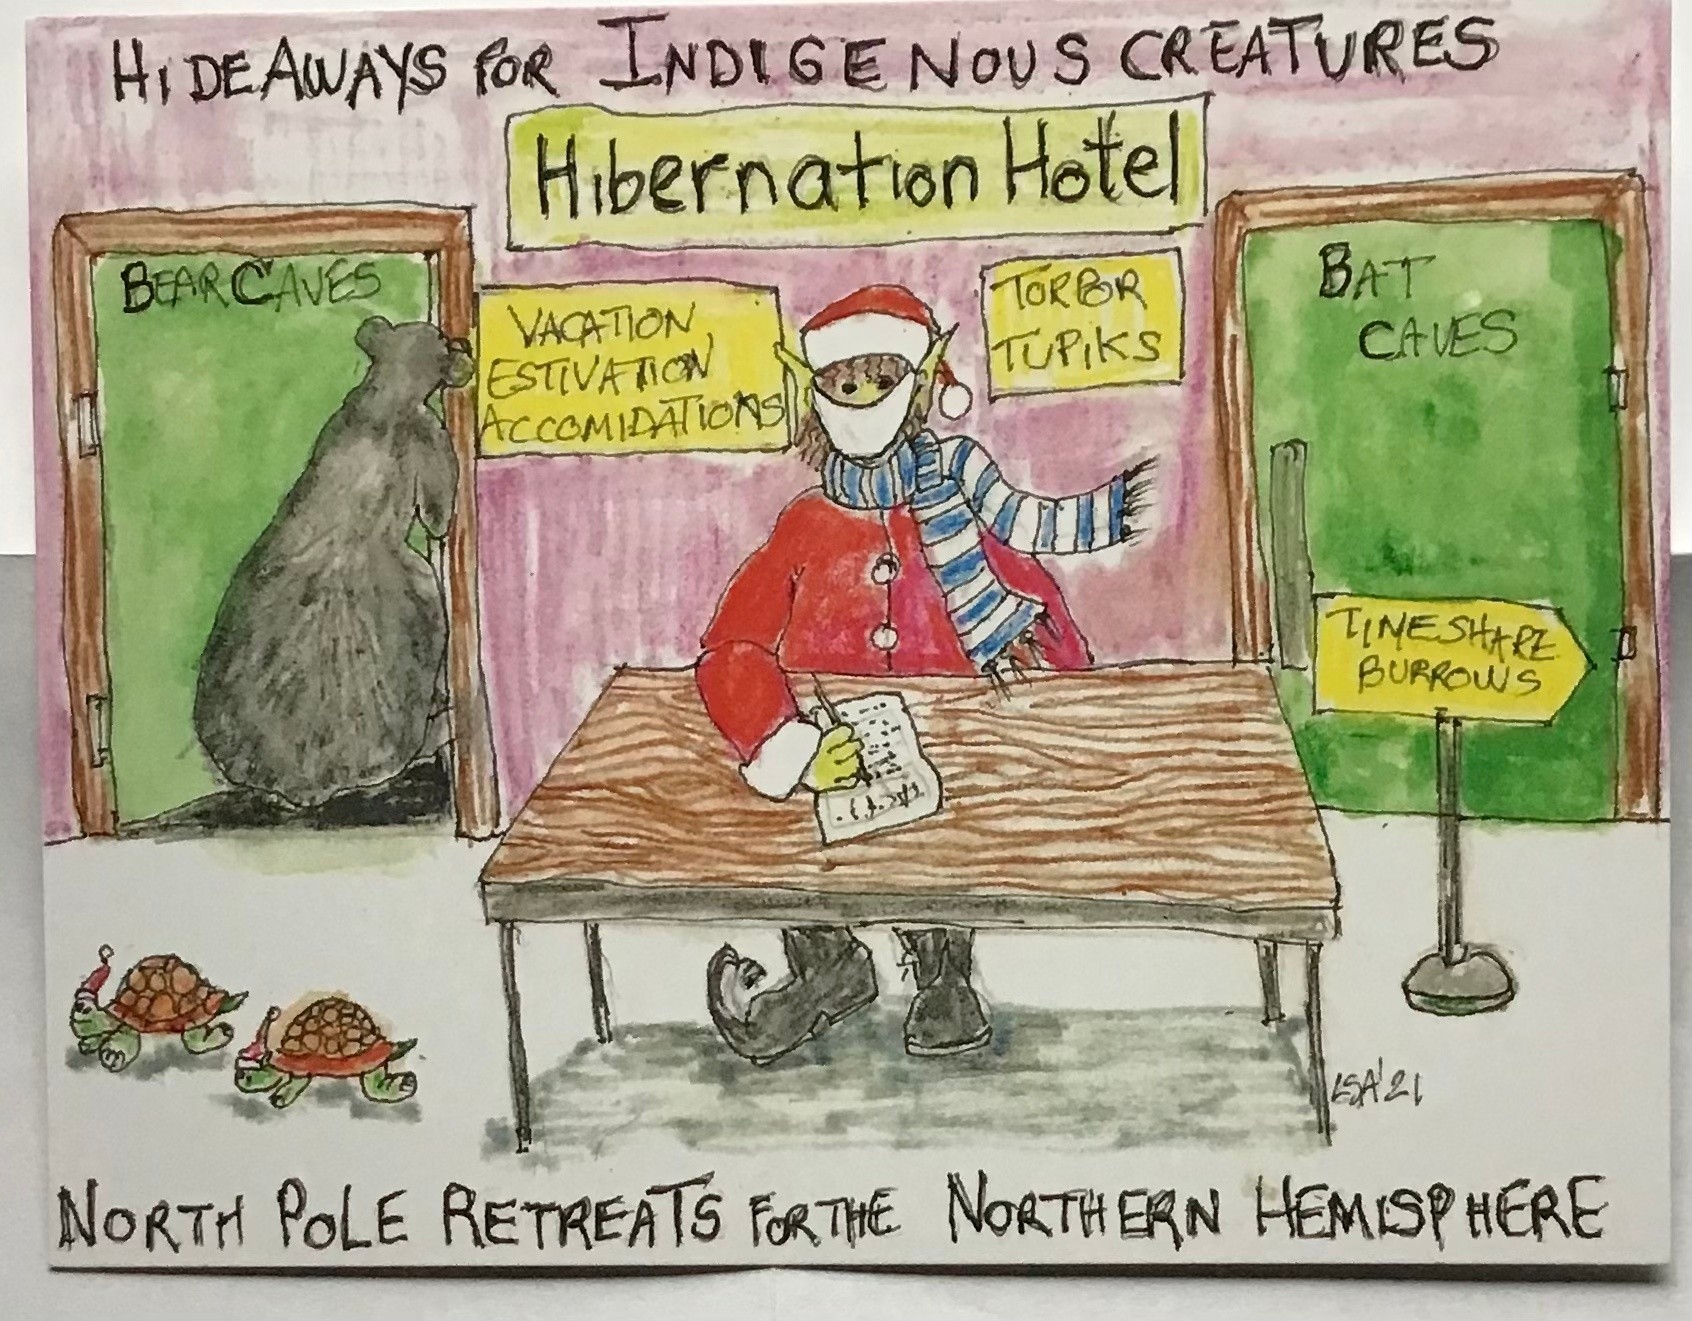 HIDEAWAYS FOR INDIGENOUS CREATURES
Hibernation Hotel
BEAR CAVES
VACATION
ESTIVATION
ACCOMIDATIONS
TORPOR
TUPIKS
BAT
CAVES
TIMESHARE
BURROWS
LSA'21
NORTH POLE RETREATS FOR THE NORTHERN HEMISPHERE